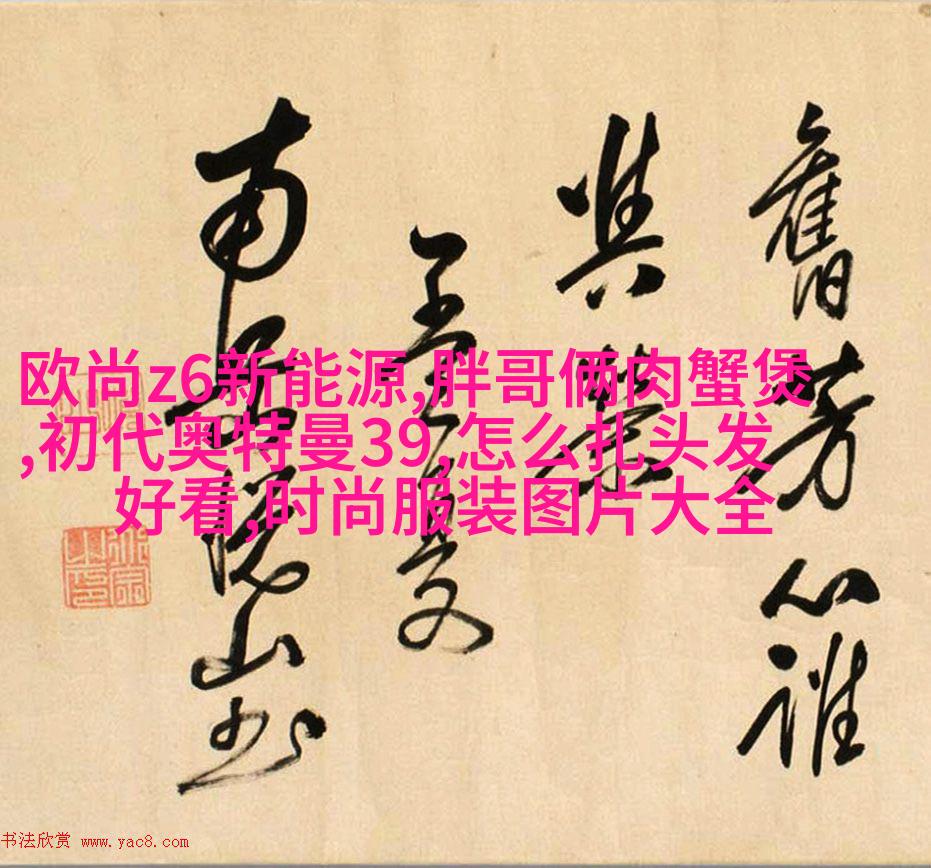 舊芳心誰
與
夏
南山书
欧尚z6新能源,胖哥俩肉蟹煲
,初代奥特曼39,怎么扎头发
好看,时尚服装图片大全
书法欣赏 www.yac8.com